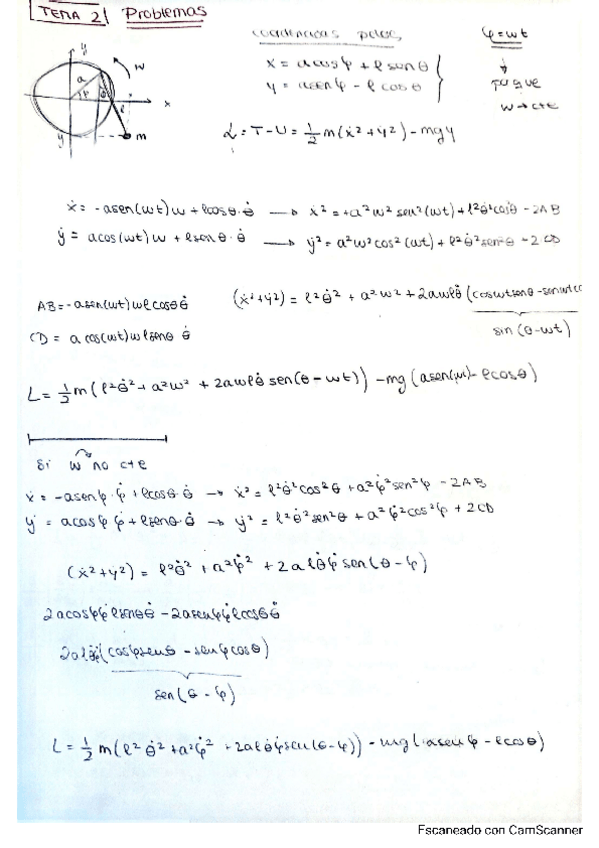 TEMA 2 Problemas
y
w
a
φ
θ
x
l
m
y
coordenadas polares
x = a cosφ + l senθ
y = a senφ - l cosθ
φ = wt
porque
w → cte
L = T - U = 1/2 m (ẋ² + ẏ²) - mgy
ẋ = -a sen(wt) w + l cosθ · θ̇ → ẋ² = +a² w² sen²(wt) + l² θ̇² cos²θ - 2AB
ẏ = a cos(wt) w + l senθ · θ̇ → ẏ² = a² w² cos²(wt) + l² θ̇² sen²θ - 2CD
AB = -a sen(wt) w l cosθ θ̇
(ẋ² + ẏ²) = l² θ̇² + a² w² + 2awlθ̇ (coswt senθ - senwt co
sin(θ - wt)
CD = a cos(wt) w l senθ θ̇
L = 1/2 m (l² θ̇² + a² w² + 2awlθ̇ sen(θ - wt)) - mg (a sen(wt) - l cosθ)
Si w no cte
ẋ = -a senφ · φ̇ + l cosθ · θ̇ → ẋ² = l² θ̇² cos²θ + a² φ̇² sen²φ - 2AB
ẏ = a cosφ φ̇ + l senθ · θ̇ → ẏ² = l² θ̇² sen²θ + a² φ̇² cos²φ + 2CD
(ẋ² + ẏ²) = l² θ̇² + a² φ̇² + 2a l θ̇ φ̇ sen(θ - φ)
2a cosφ φ̇ l senθ θ̇ - 2a senφ φ̇ l cosθ θ̇
2a l θ̇ φ̇ (cosφ senθ - senφ cosθ)
sen(θ - φ)
L = 1/2 m (l² θ̇² + a² φ̇² + 2a l θ̇ φ̇ sen(θ - φ)) - mg (a senφ - l cosθ)
Escaneado con CamScanner